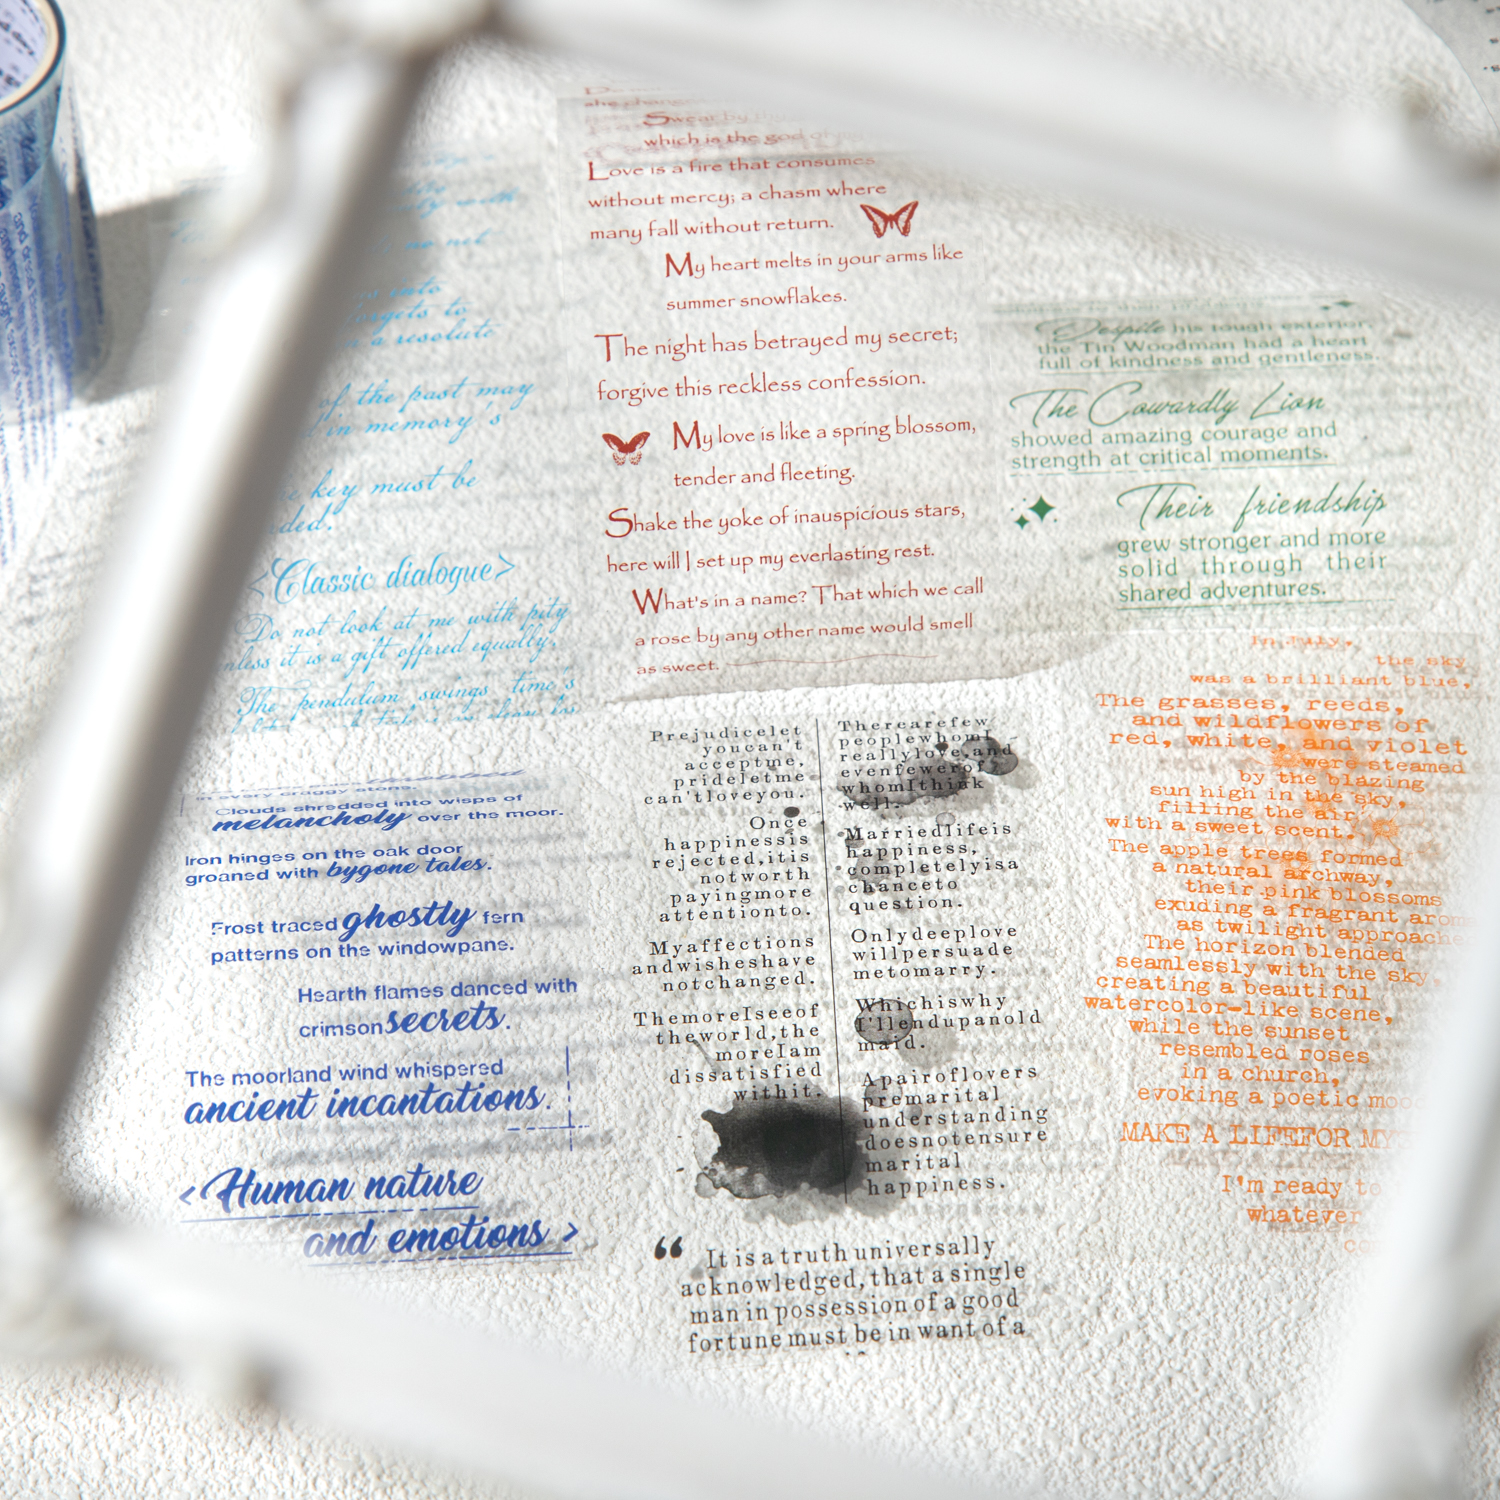 of the past may
in memory's
key must be
<Classic dialogue>
Do not look at me with pity
unless it is a gift offered equally.
The pendulum swings, time's
which is the god of
Love is a fire that consumes
without mercy; a chasm where
many fall without return.
My heart melts in your arms like
summer snowflakes.
The night has betrayed my secret;
forgive this reckless confession.
My love is like a spring blossom,
tender and fleeting.
Shake the yoke of inauspicious stars,
here will I set up my everlasting rest.
What's in a name? That which we call
a rose by any other name would smell
as sweet.
Despite his tough exterior,
the Tin Woodman had a heart
full of kindness and gentleness.
The Cowardly Lion
showed amazing courage and
strength at critical moments.
Their friendship
grew stronger and more
solid through their
shared adventures.
in every craggy stone.
Clouds shredded into wisps of
melancholy over the moor.
Iron hinges on the oak door
groaned with bygone tales.
Frost traced ghostly fern
patterns on the windowpane.
Hearth flames danced with
crimson secrets.
The moorland wind whispered
ancient incantations.
<Human nature
and emotions>
Prejudicelet
youcan't
acceptme,
prideletme
can'tloveyou.
Once
happinessis
rejected,itis
notworth
payingmore
attentionto.
Myaffections
andwisheshave
notchanged.
ThemoreIseeof
theworld,the
moreIam
dissatisfied
withit.
Therearefew
peoplewhomI
reallylove,and
evenfewerof
whomIthink
well.
Marriedlifeis
happiness,
completelyisa
chanceto
question.
Onlydeeplove
willpersuade
metomarry.
Whichiswhy
I'llendupanold
maid.
Apairoflovers
premarital
understanding
doesnotensure
marital
happiness.
“ It is a truth universally
acknowledged, that a single
man in possession of a good
fortune must be in want of a
the sky
was a brilliant blue,
The grasses, reeds,
and wildflowers of
red, white, and violet
were steamed
by the blazing
sun high in the sky,
filling the air
with a sweet scent.
The apple trees formed
a natural archway,
their pink blossoms
exuding a fragrant
as twilight
The horizon blended
seamlessly with the sky,
creating a beautiful
watercolor-like scene,
while the sunset
resembled roses
in a church,
evoking a poetic
MAKE A LIFEFOR
I'm ready to
whatever